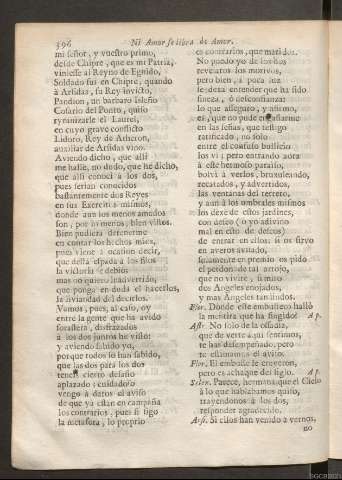 396 Ni Amor se libra de Amor.
mi señor, y vuestro primo,
desde Chipre, que es mi Patria,
viniesse al Reyno de Egnido,
Soldado fui en Chipre, quando
à Arsidas, su Rey invicto,
Pandion, un barbaro Isleño
Cosario del Ponto, quiso
tyranizarle el Laurel,
en cuyo grave conflicto
Lidoro, Rey de
auxiliar de Arsidas vino.
Aviendo dicho, que alli
me hallè, no dudo, que he dicho,
que alli conocì à los dos,
pues serian conocidos
bastantemente dos Reyes
en sus Exercitos mismos,
donde aun los menos amados
son, por numeros, bien vistos.
Bien pudiera detenerme
en contar los hechos mios,
pues viene à ocasion decir,
que desta espada à los filos
la victoria se debiò:
mas no quiero inadvertido,
que ponga en duda el hacerlos,
la liviandad del decirlos.
Vamos, pues, al caso, oy
entre la gente que ha avido
forastera, disfrazados
à los dos juntos he visto:
y aviendo sabido yo,
porque todos lo han sabido,
que las dos para los dos
teneis cierto desafio
aplazado; cuidadoso
vengo à daros el aviso
de que yà estàn en campaña
los contrarios, pues si sigo
la metafora, lo proprio
es contrarios, que maridos.
No puedo yo de los dos
revelaros los motivos,
pero bien, à poca luz
se dexa entender que ha sido
fineza, ò desconfianza:
lo que asseguro, y afirmo,
es, que no pude engañarme
en las señas, que testigo
ratificado, no solo
entre el confuso bullicio
los vì; pero entrando aora
à este hermoso paraiso,
bolvì à verlos, bruxuleando,
recatados, y advertidos,
las ventanas del terrero,
y aun à los umbrales mismos
los dexè de estos jardines,
con deseo (ò yo adivino
mal en esto de deseos)
de entrar en ellos: si os sirvo
en averos avisado,
solamente en premio os pido
el perdon de tal arrojo,
que no vivirè, si miro
dos Angeles enojados,
y mas Angeles tan lindos.
Flor. Donde este embustero hallò
la mentira que ha fingido! Ap.
Astr. No solo de la osadia,
que de verte aqui sentimos,
te has desempeñado, pero
te estimamos el aviso.
Flor. El embuste le creyeron,
pero es achaque del siglo. Ap.
Selen. Parece, hermana, que el Cielo
à lo que hablabamos quiso,
trayendonos à los dos,
responder agradecido.
Ars. Si ellos han venido à vernos,
no